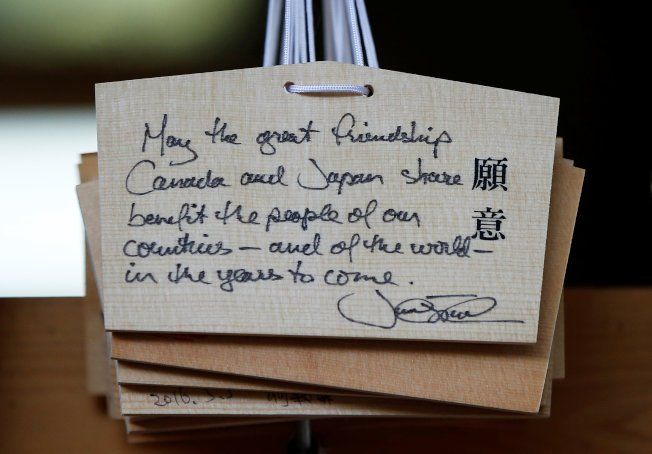 May the great friendship
Canada and Japan share
benefit the people of our
countries – and of the world –
in the years to come.
願意
2016.